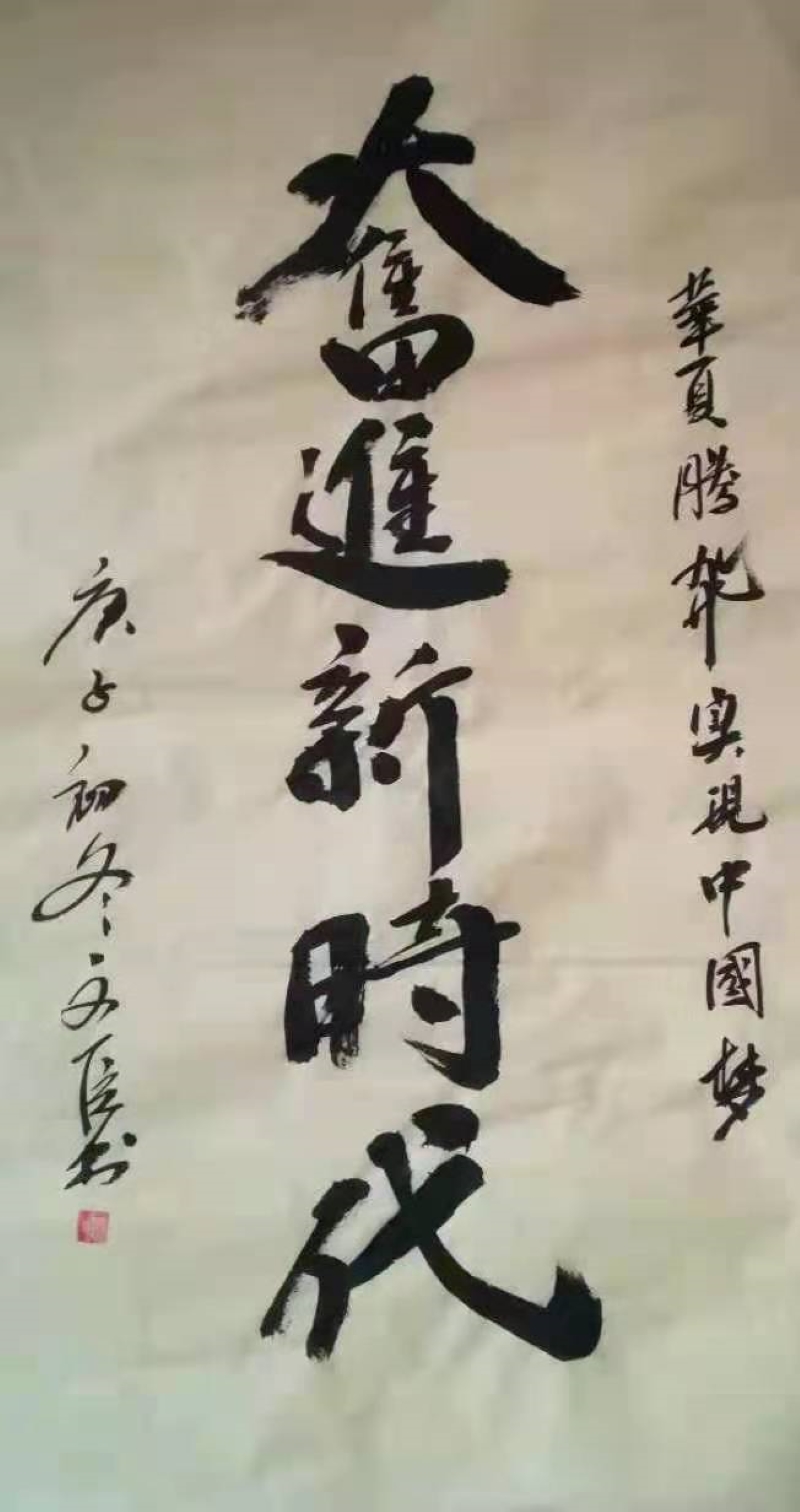 華夏騰飛實現中國梦
奮進新時代
庚子初冬文臣书